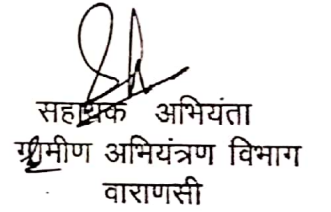 सहायक अभियंता
ग्रामीण अभियंत्रण विभाग
वाराणसी